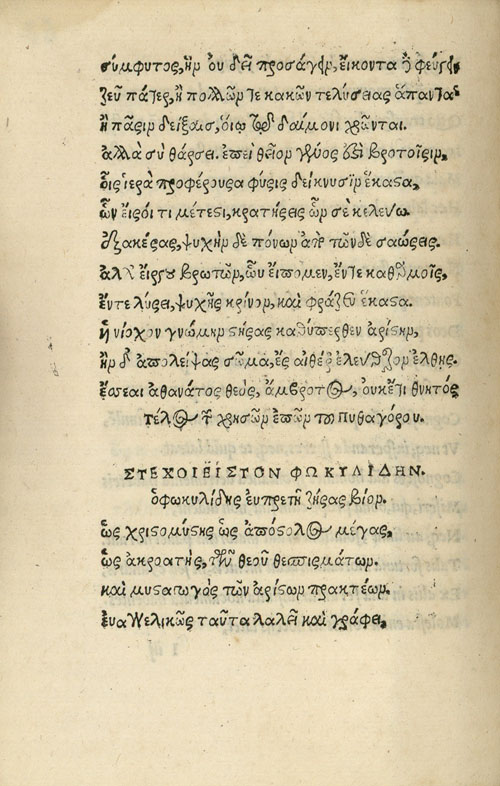 σύμφυτος, ἣμ ὀυ δεῖ προσάγιμ, ἔικοντα ἢ φεύγιμ
ζεῦ πάτερ, ἢ πολλῶμ τε κακῶν τελύσειας ἅπαντας
ἢ πᾶσιμ δείξαισ, ὁιῳ τῷ δαίμονι χρῶνται.
ἀλλὰ σὺ θάρσει. ἐπεὶ θεῖομ γένος ἐςὶ βροτοῖσιμ,
ὁις ἱερὰ προφέρουσα φύσις δείκνυσιμ ἕκαςα,
ὧν εἴςοι τι μέτεςι, κρατήσεις ὧμ σὲ κελεύω.
ἐξακέσας, ψυχὴμ δὲ πόνωμ ἀπὸ τῶνδε σαώσεις.
ἀλλ' εἴργου βρωτῶμ, ὧυ ἔιπομεν, ἔν τε καθαρμοῖς,
ἔν τε λύσει, ψυχῆς κρίνομ, καὶ φράζευ ἕκαςα.
ἡνίοχον γνώμημ ςήσας καθύπερθεν ἀρίςημ,
ἢμ δ' ἀπολείψας σῶμα, ἐς αἰθέρ' ἐλεύθερομ ἔλθῃς.
ἔσσεαι ἀθανάτος θεὸς, ἄμβροτος, ὀυκέτι θνητός
τέλος τ χρυσῶμ ἐπῶμ τοῦ Πυθαγόρου.
ΣΤΕΧΟΙΕΙΣΤΟΝ ΦΩΚΥΛΙΔΗΝ.
ὁφωκυλίδης ἐυπρεπῆ ζήσας βίομ.
ὥς χριςομύςης ὡς ἀπόςολος μέγας,
ὥς ἀκροατὴς, τῶν θεοῦ θεσπισμάτωμ.
καὶ μυςαγωγὸς τῶν ἀρίςωμ πρακτέωμ.
ἐυαγγελικῶς ταῦτα λαλεῖ καὶ γράφει,